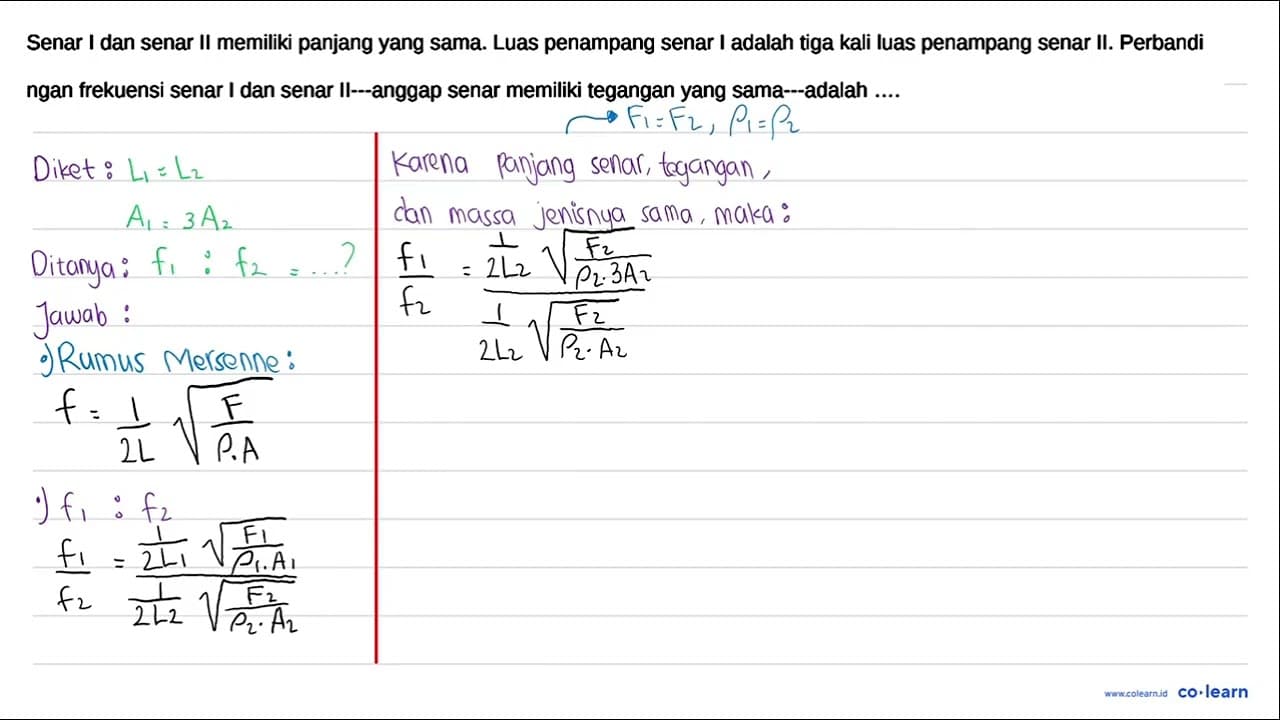 Senar I dan senar II memiliki panjang yang sama. Luas penampang senar I adalah tiga kali luas penampang senar II. Perbandi
ngan frekuensi senar I dan senar II---anggap senar memiliki tegangan yang sama---adalah ....
F₁ = F₂, ρ₁ = ρ₂
Diket : L₁ = L₂
A₁ = 3A₂
Ditanya : f₁ : f₂ = ...?
Jawab :
•) Rumus Mersenne :
f = 1/2L √(F/ρ.A)
•) f₁ : f₂
f₁/f₂ = (1/2L₁ √(F₁/ρ₁.A₁)) / (1/2L₂ √(F₂/ρ₂.A₂))
Karena panjang senar, tegangan,
dan massa jenisnya sama, maka :
f₁/f₂ = (1/2L₂ √(F₂/ρ₂.3A₂)) / (1/2L₂ √(F₂/ρ₂.A₂))
www.colearn.id co·learn